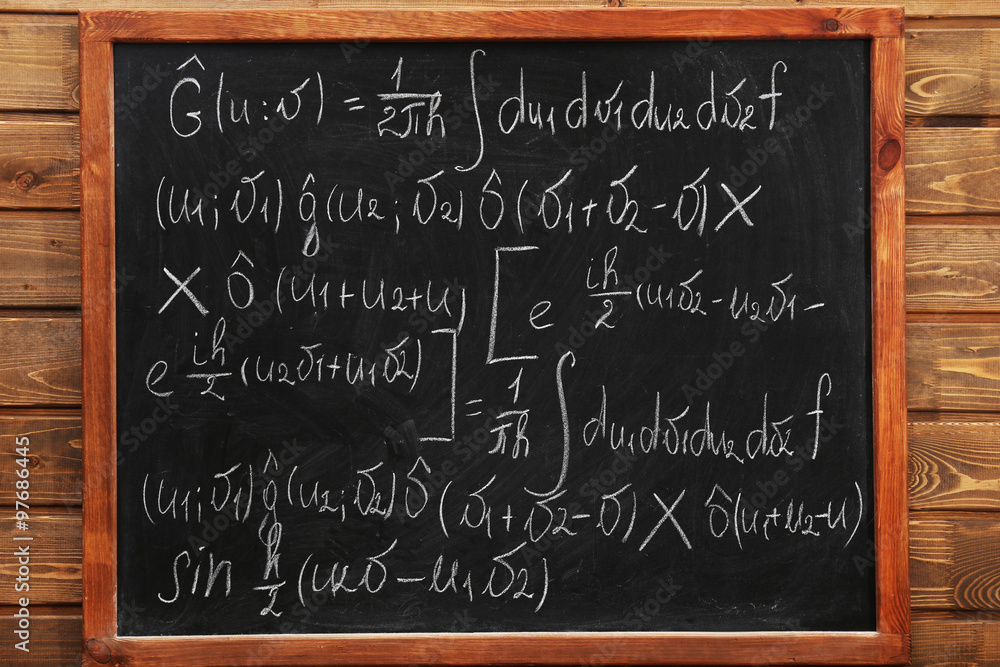 Ĝ(u:v) = 1/2πħ ∫du1dv1du2dv2f
(u1;v1)ĝ(u2;v2)ô(v1+v2-v)×
×ô(u1+u2+u)[e iħ/2(u1v2-u2v1-
e iħ/2(u2v1+u1v2)]=1/πħ ∫du1dv1du2dv2f
(u1;v1)ĝ(u2;v2)ô(v1+v2-v)×ô(u1+u2-u)
sin ħ/2(u2v-u1v2)
Adobe Stock | #97686445